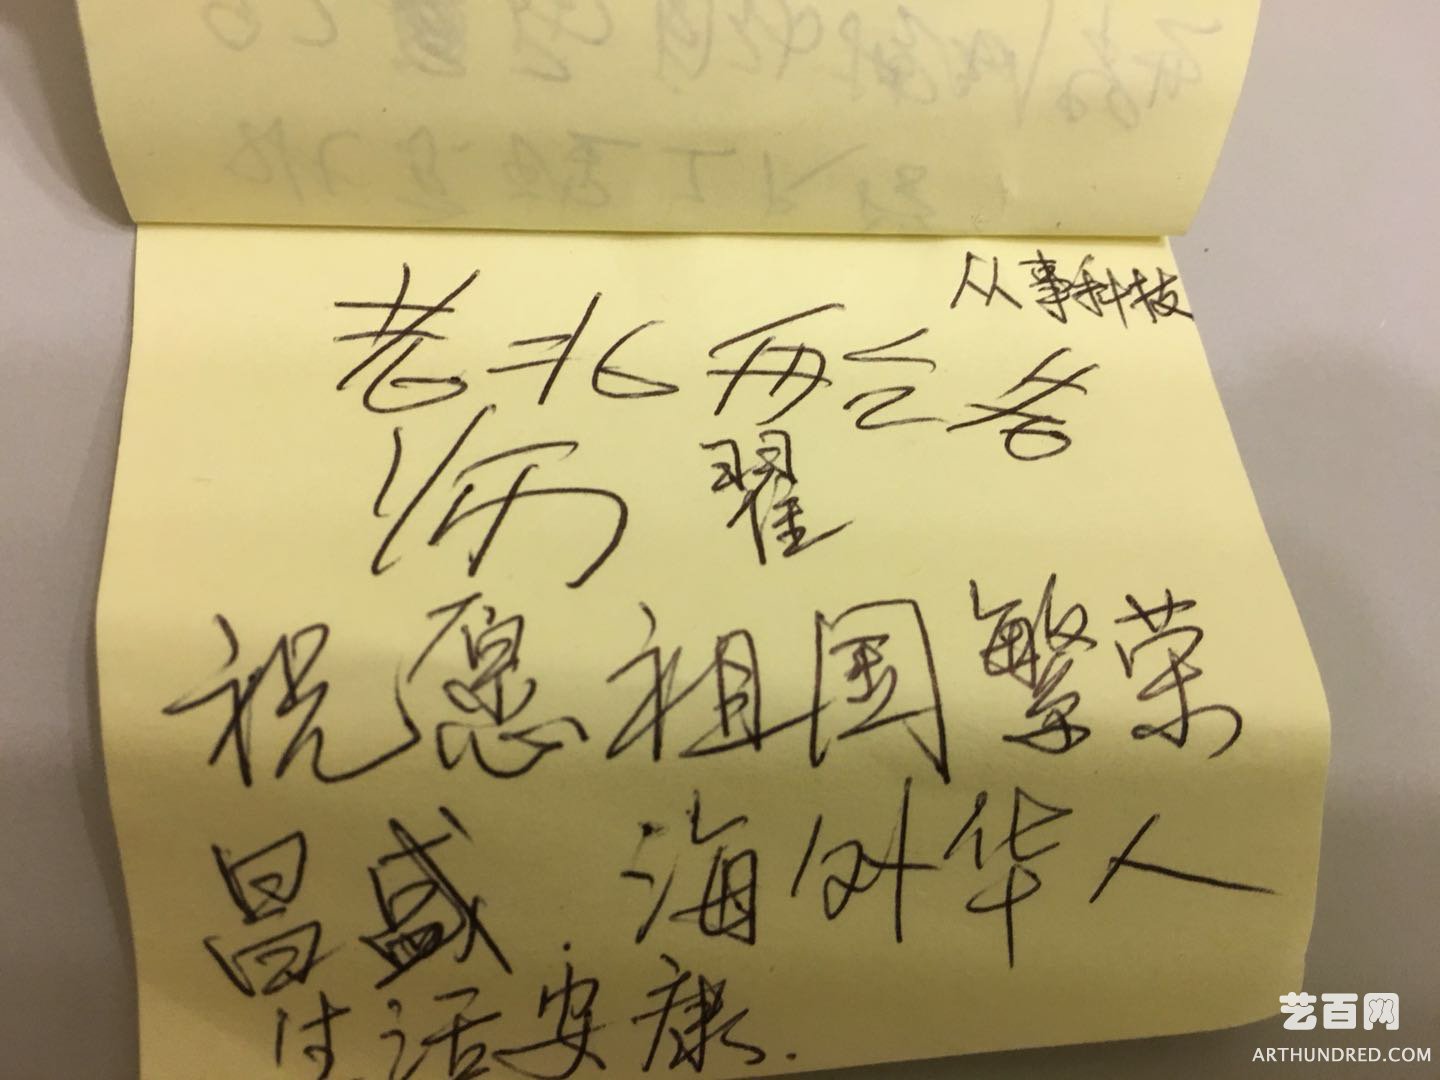 从事科技
老北
师 翟
祝愿祖国繁荣
昌盛.海外华人
生活安康.
艺百网
ARTHUNDRED.COM